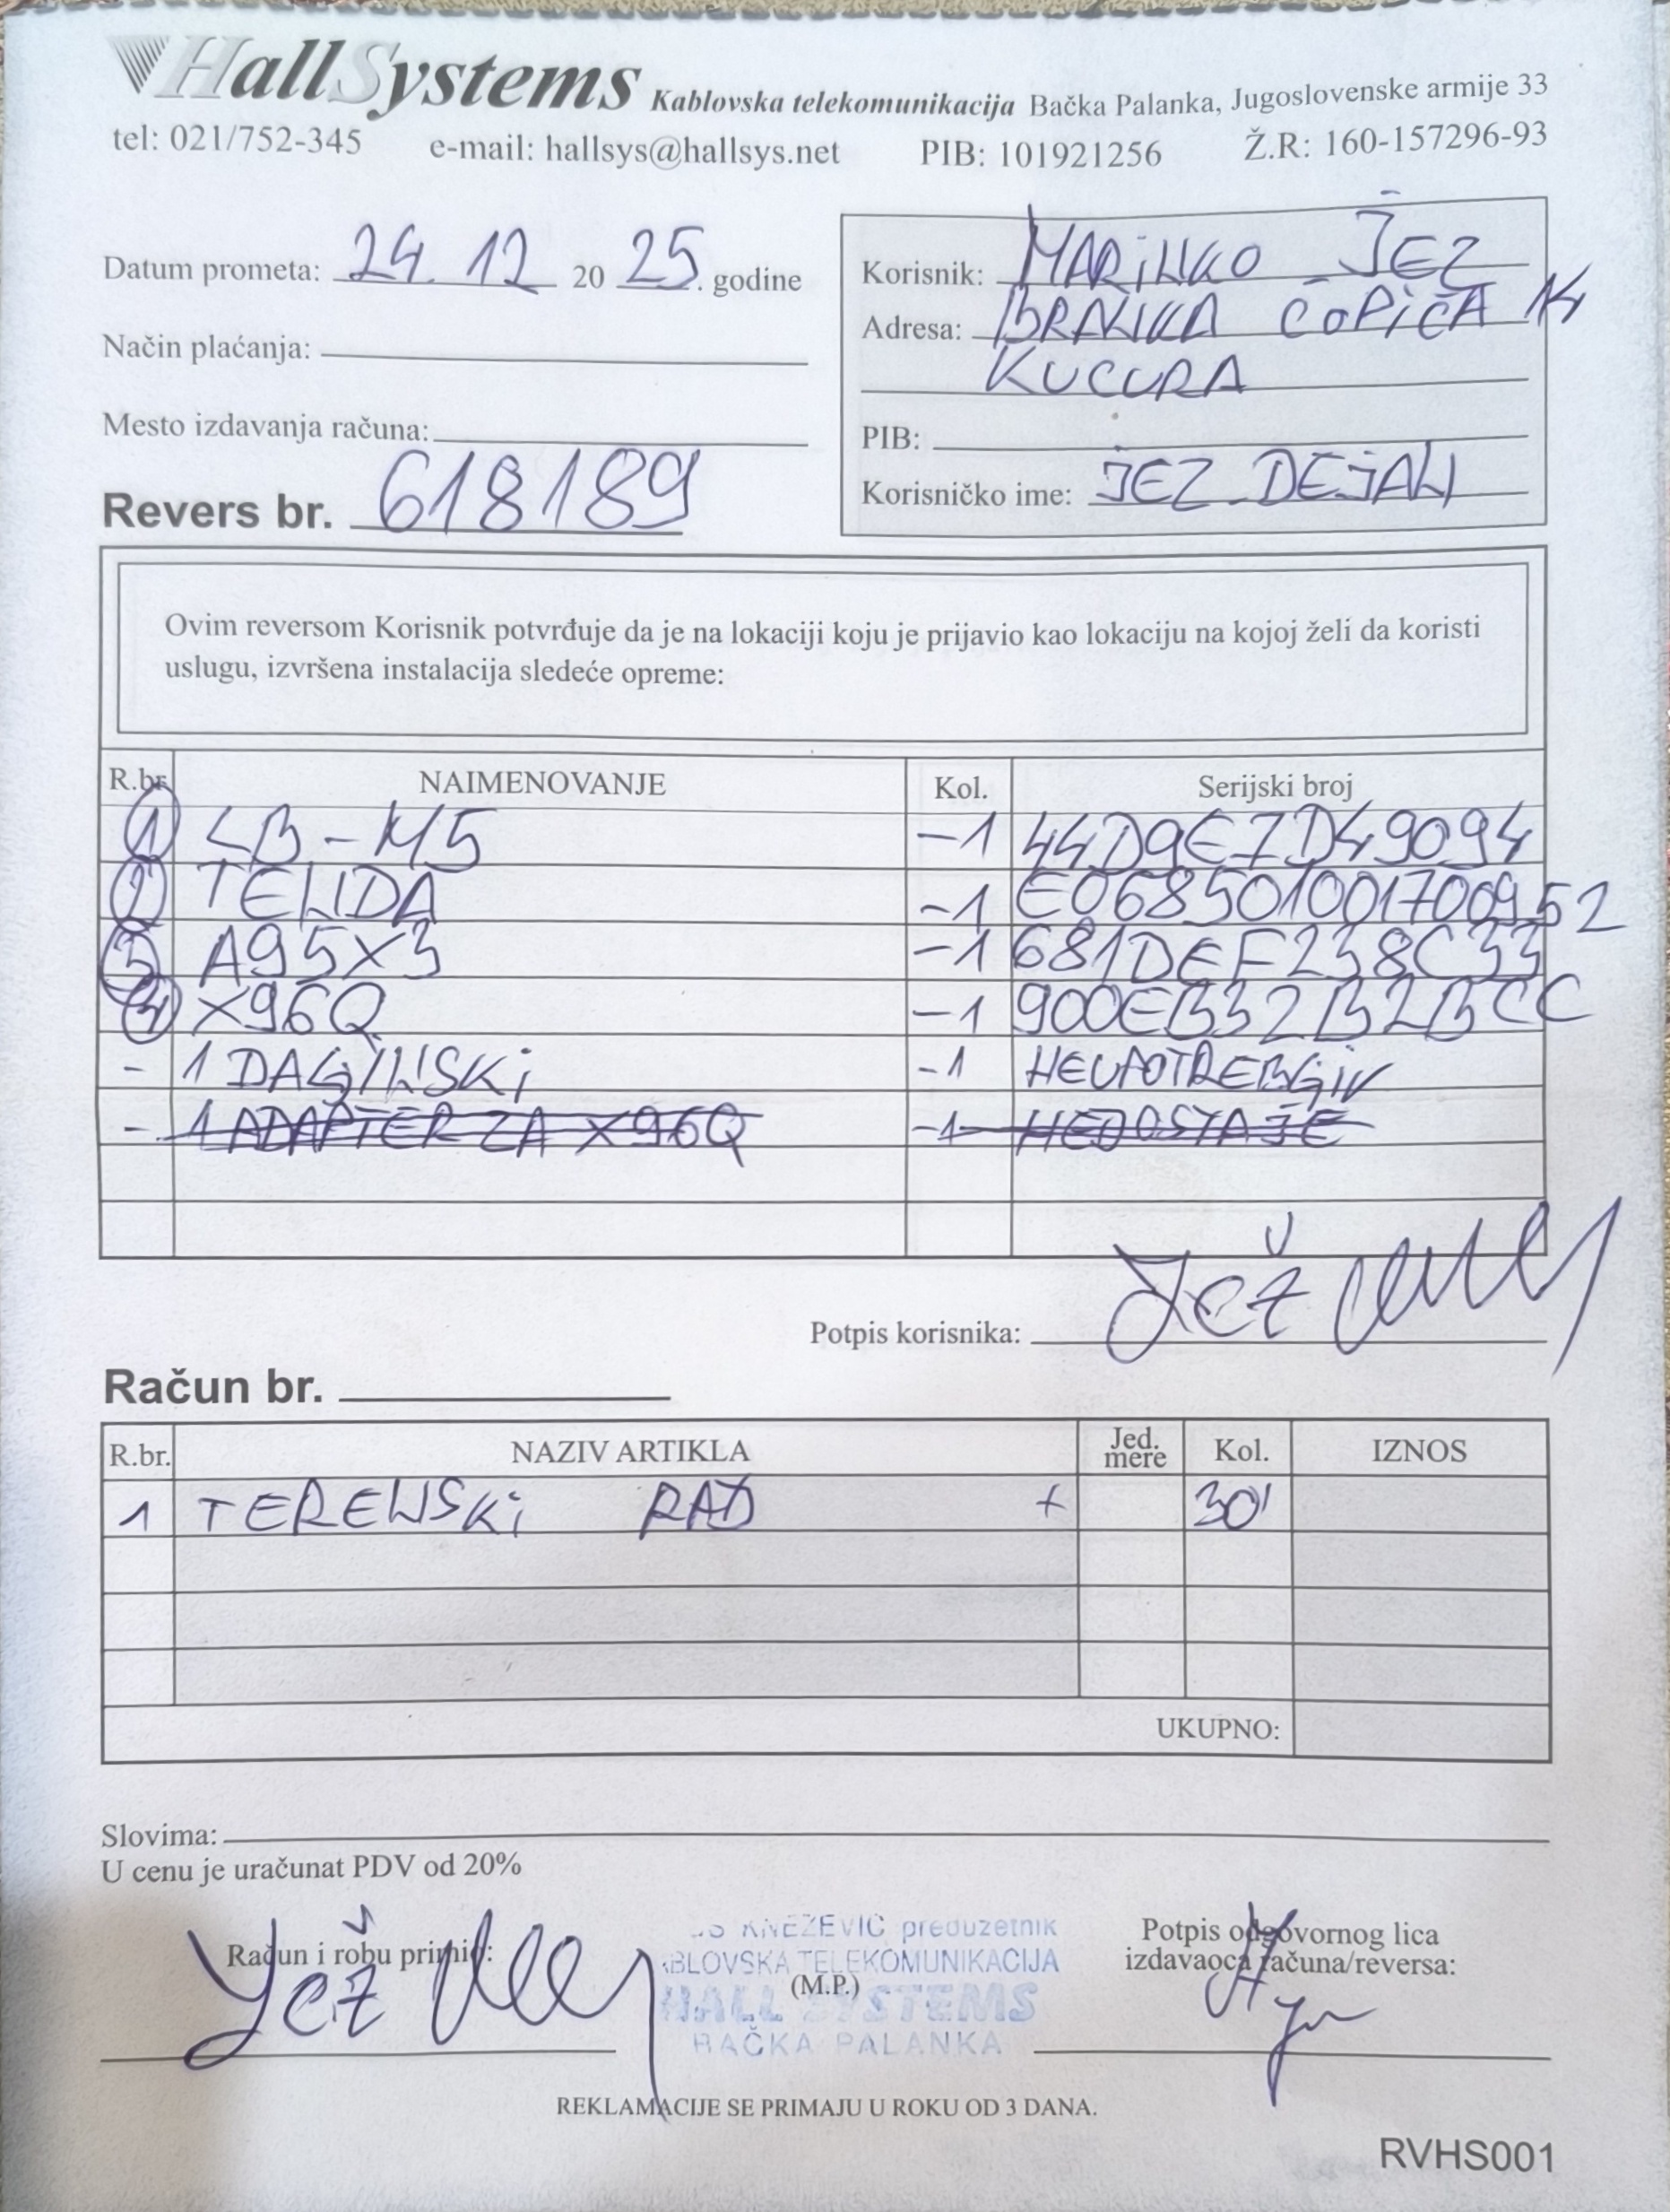 HallSystems Kablovska telekomunikacija Bačka Palanka, Jugoslovenske armije 33
tel: 021/752-345 e-mail: hallsys@hallsys.net PIB: 101921256 Ž.R: 160-157296-93
Datum prometa: 24. 12 20 25. godine
Način plaćanja:
Mesto izdavanja računa:
Revers br. 618189
Korisnik: MARINKO JEZ
Adresa: BRANKA ĆOPIĆA 14
KUCURA
PIB:
Korisničko ime: JEZ_DEJAN
Ovim reversom Korisnik potvrđuje da je na lokaciji koju je prijavio kao lokaciju na kojoj želi da koristi
uslugu, izvršena instalacija sledeće opreme:
R.br. NAIMENOVANJE Kol. Serijski broj
1 LB-M5 -1 44D9E7D49094
2 TELIDA -1 E068501001700952
3 A95X3 -1 681DEF238C33
4 X96Q -1 900EB32B2BCC
- 1 DALJINSKI -1 NEUPOTREBLJIV
- 1 ADAPTER ZA X96Q -1 NEDOSTAJE
Potpis korisnika: Jež
Račun br.
R.br. NAZIV ARTIKLA Jed. mere Kol. IZNOS
1 TERENSKI RAD + 30'
UKUPNO:
Slovima:
U cenu je uračunat PDV od 20%
Račun i robu primio:
Jež
KNEŽEVIĆ preduzetnik
BLOVSKA TELEKOMUNIKACIJA
(M.P.)
HALL SYSTEMS
BAČKA PALANKA
Potpis odgovornog lica
izdavaoca računa/reversa:
REKLAMACIJE SE PRIMAJU U ROKU OD 3 DANA.
RVHS001